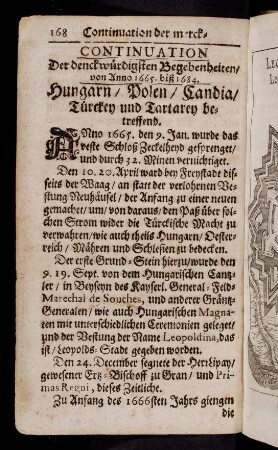 168 Continuation der merck-
CONTINUATION
Der denckwürdigsten Begebenheiten/
von Anno 1665. biß 1684.
Hungarn/ Polen/ Candia/
Türckey und Tartarey be-
treffend.
ANno 1665. den 9. Jan. wurde das
veste Schloß Zeckelheyd gesprenget/
und durch 32. Minen vernichtiget.
Den 10. 20. April ward bey Freystade dis-
seits der Waag/ an statt der verlohrnen Ve-
stung Neuhäusel/ der Anfang zu einer neuen
gemachet/ um/ von daraus/ den Paß über sol-
chen Strom wider die Türckische Macht zu
verwahren/ wie auch theils Hungarn/ Oester-
reich/ Mähren und Schlesien zu bedecken.
Der erste Grund-Stein hierzu/ wurde den
9. 19. Sept. von dem Hungarischen Cantz-
ler/ in Beyseyn des Kayserl. General-Felds
Marechal de Souches, und anderer Gräntz-
Generalen/ wie auch Hungarischen Magna-
ten mit unterschiedlichen Ceremonien geleget/
und der Vestung der Name Leopoldina, das
ist/ Leopolds-Stadt gegeben worden.
Den 24. December segnete der Herr Lipay/
gewesener Ertz-Bischoff zu Gran/ und Pri-
mas Regni, dieses Zeitliche.
Zu Anfang des 1666sten Jahrs giengen
die